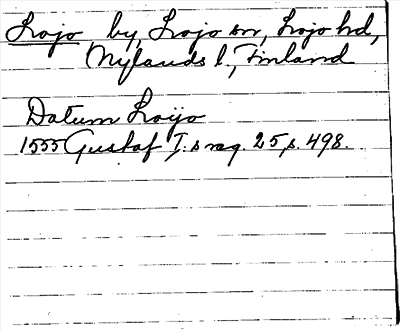 Lojo by, Lojo sn, Lojo hd,
Nylands l., Finland
Datum Loijo
1555 Gustaf I:s reg. 25 s. 498.